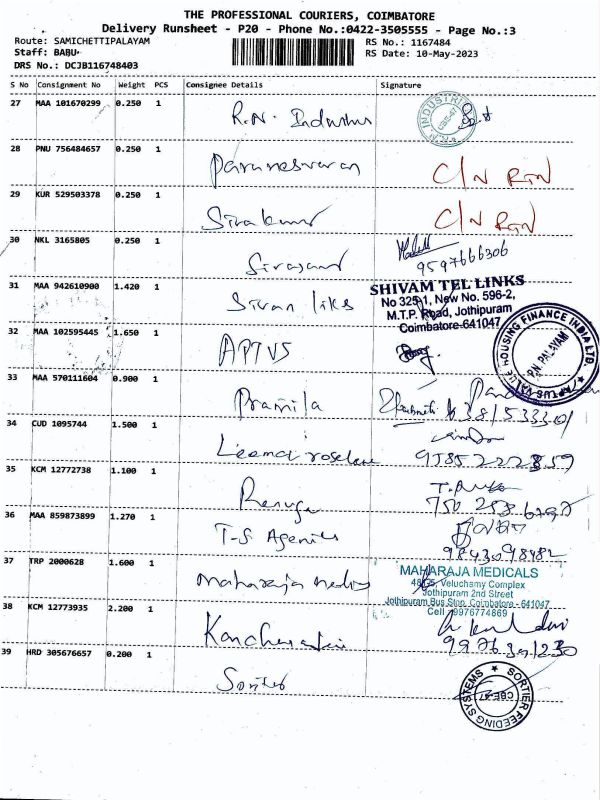 THE PROFESSIONAL COURIERS, COIMBATORE
Delivery Runsheet - P20 - Phone No.:0422-3505555 - Page No.:3
Route: SAMICHETTIPALAYAM
RS No.: 1167484
Staff: BABU
RS Date: 10-May-2023
DRS No.: DCJB116748403
S No Consignment No Weight PCS Consignee Details Signature
27 MAA 101670299 0.250 1
R.N. Industries
28 PNU 756484657 0.250 1
Parameswaran C/N RTN
29 KUR 529503378 0.250 1
Sivakumar C/N RTN
30 NKL 3165805 0.250 1
9597666306
31 MAA 942610900 1.420 1
Sivan liks
SHIVAM TEL LINKS
No 325-1, New No. 596-2,
M.T.P. Road, Jothipuram
Coimbatore-641047
32 MAA 102595445 1.650 1
APTVS
APTUS VALUE HOUSING FINANCE INDIA LTD.
P.N. PALAYAM
33 MAA 570111604 0.900 1
Pramila
34 CUD 1095744 1.500 1
Leema
35 KCM 12772738 1.100 1
Renuga
36 MAA 859873899 1.270 1
T-S Agencies
9843098482
37 TRP 2000628 1.600 1
Maharaja
MAHARAJA MEDICALS
Veluchamy Complex
Jothipuram 2nd Street
Jothipuram Bus Stop, Coimbatore - 641047
Cell 9976774869
38 KCM 12773935 2.200 1
39 HRD 305676657 0.200 1
SORTIER FEEDING SYSTEMS
CBE-47